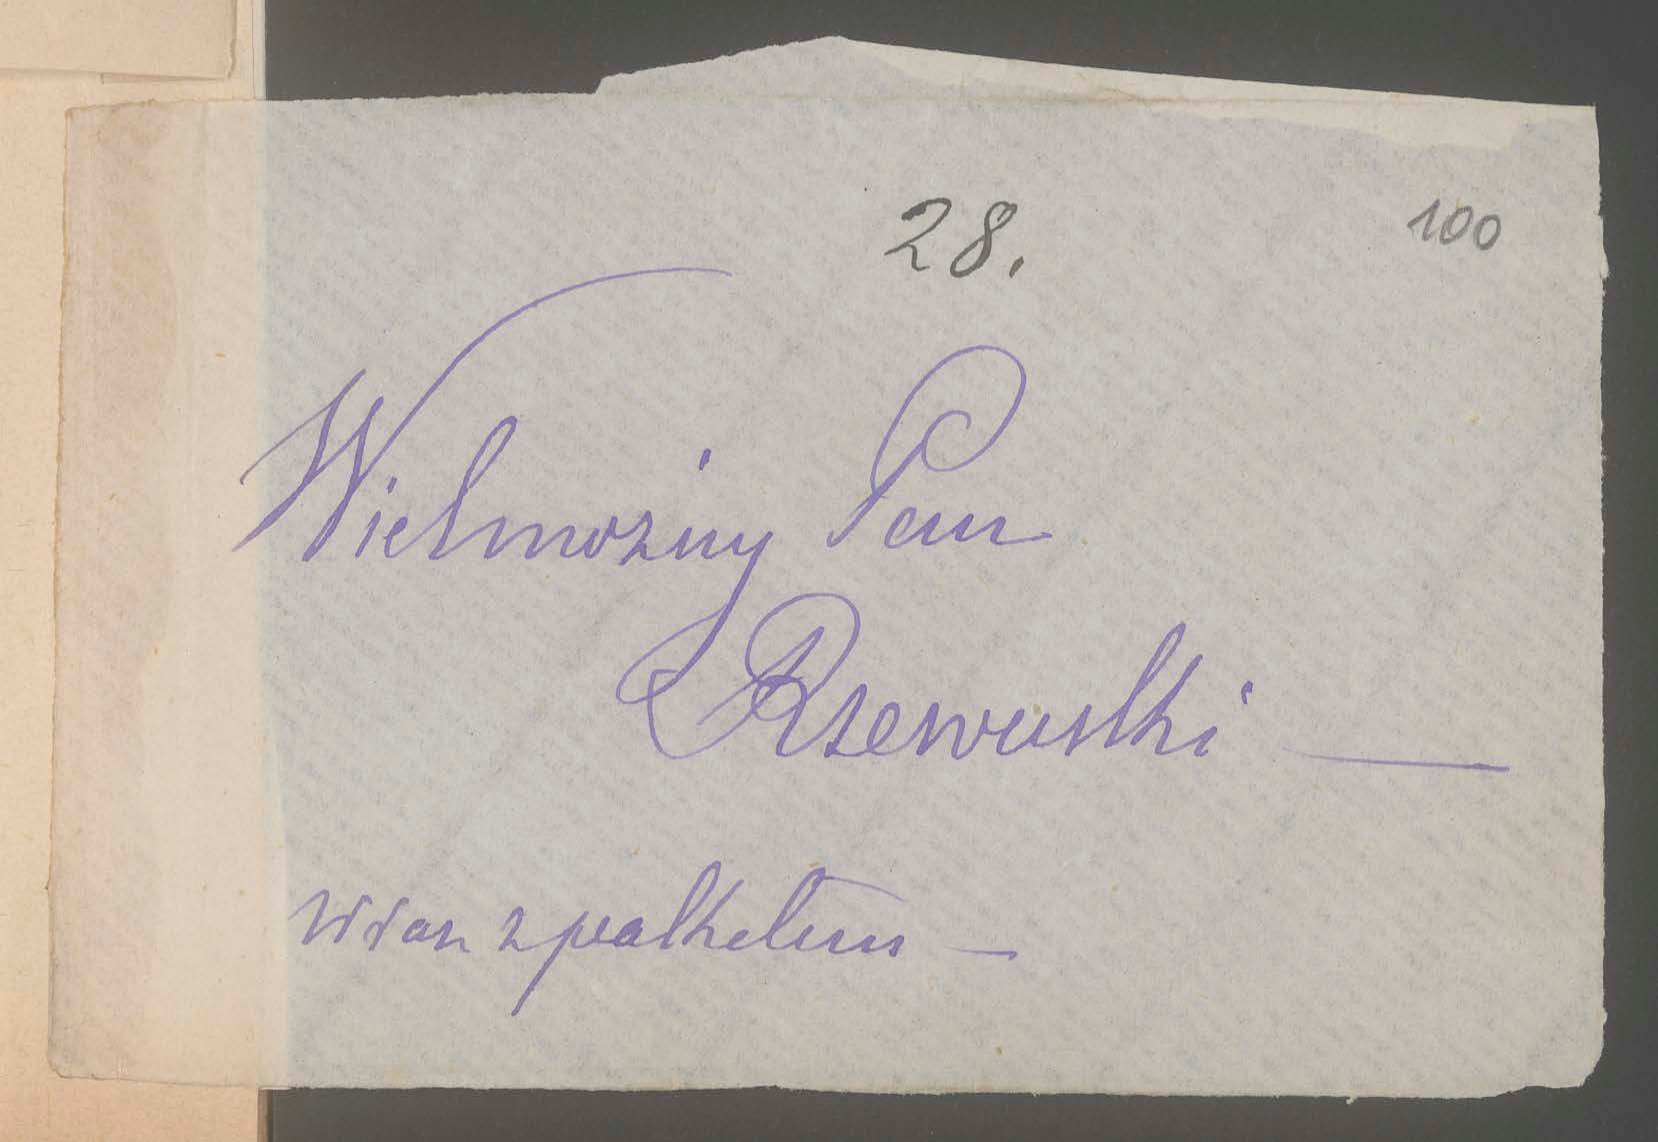 28.
100
Wielmożny Pan
Rzewuski
wraz z pakietem